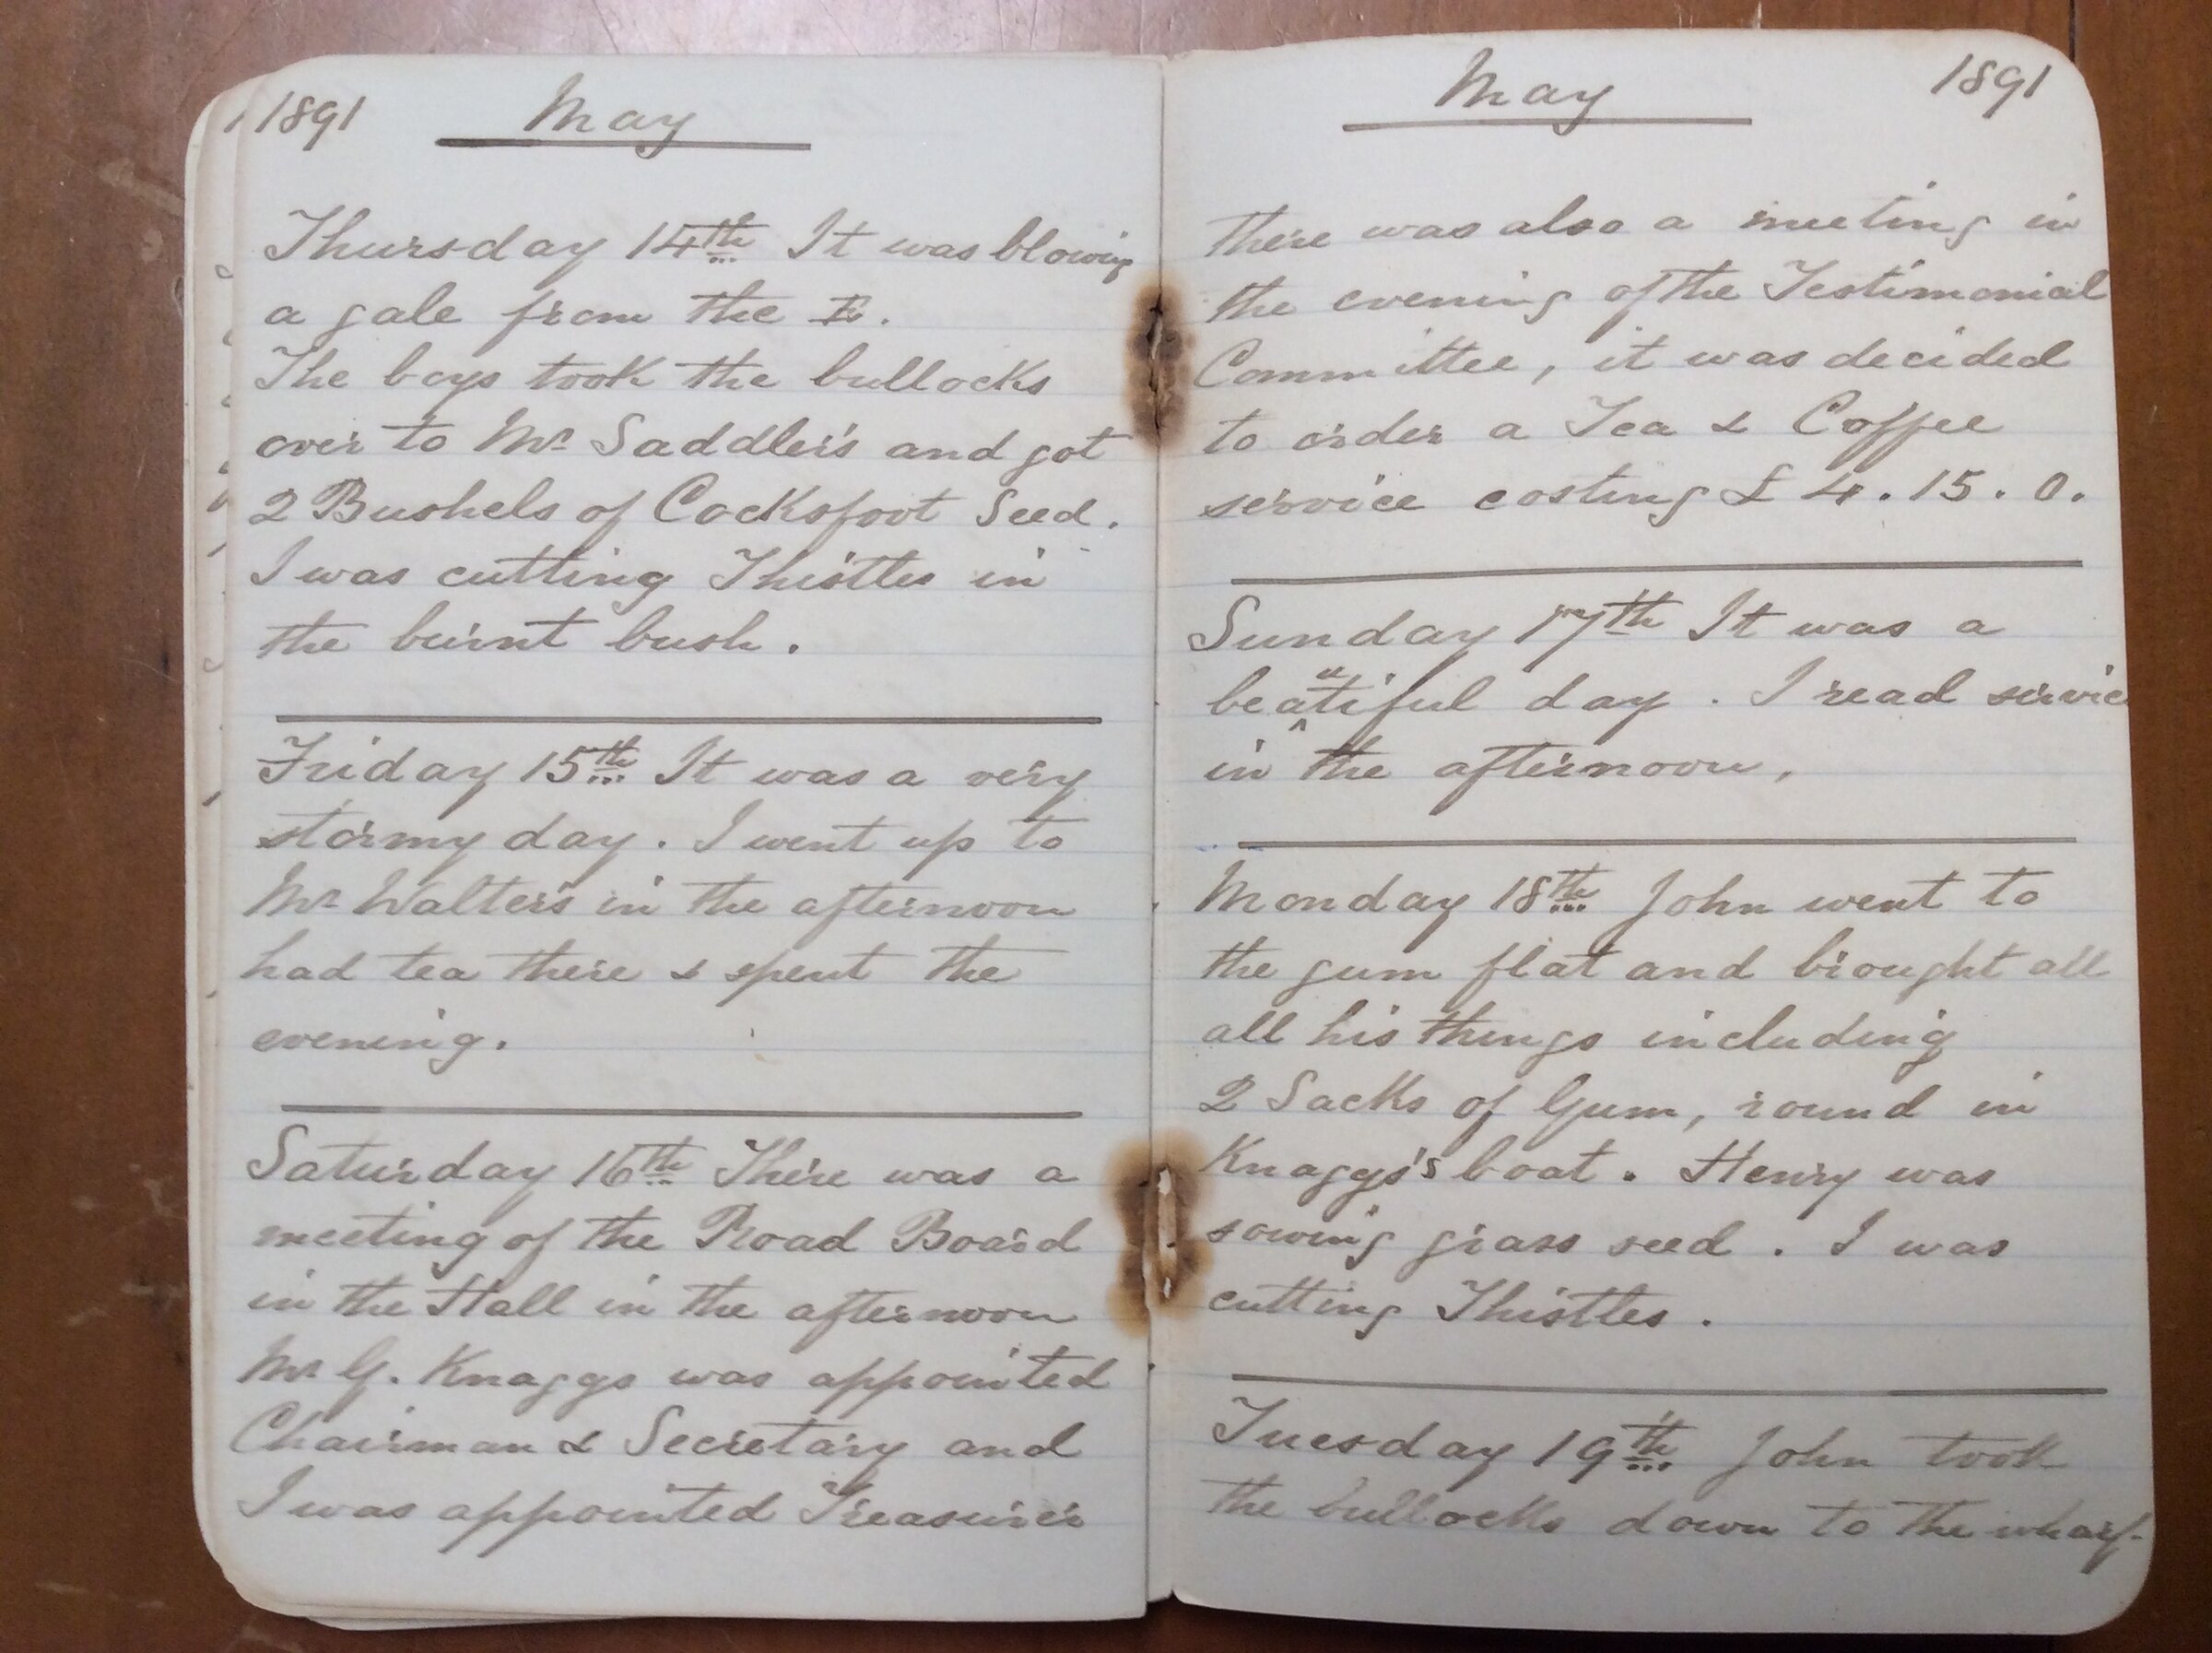 1891 May
Thursday 14th It was blowing
a gale from the E.
The boys took the bullocks
over to Mr Saddler's and got
2 Bushels of Cocksfoot Seed.
I was cutting Thistles in
the burnt bush.
Friday 15th It was a very
stormy day. I went up to
Mr Walter's in the afternoon
had tea there & spent the
evening.
Saturday 16th There was a
meeting of the Road Board
in the Hall in the afternoon
Mr G. Knaggs was appointed
Chairman & Secretary and
I was appointed Treasurer
May 1891
there was also a meeting in
the evening of the Testimonial
Committee, it was decided
to order a Tea & Coffee
service costing £ 4. 15. 0.
Sunday 17th It was a
beautiful day. I read service
in the afternoon,
Monday 18th John went to
the gum flat and brought all
all his things including
2 Sacks of Gum, round in
Knaggs's boat. Henry was
sowing grass seed. I was
cutting Thistles.
Tuesday 19th John took
the bullocks down to the wharf